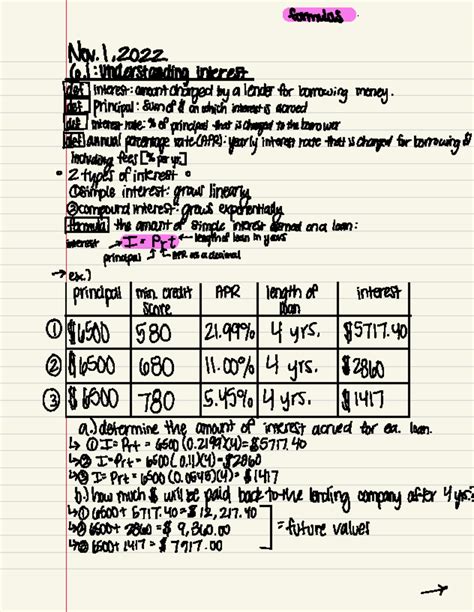 formulas
Nov. 1, 2022
6.1: Understanding interest
def interest: amount charged by a lender for borrowing money.
def Principal: sum of $ on which interest is accrued
def interest rate: % of principal that is charged to the borrower
def annual percentage rate (APR): yearly interest rate that is charged for borrowing $
including fees [% per yr.]
• 2 types of interest •
①simple interest: grows linearly
②compound interest: grows exponentially
formula the amount of simple interest earned on a loan:
interest → I = Prt ← length of loan in years
principal ↑ ↑ APR as a decimal
→ ex.)
principal min. credit score APR length of loan interest
① $6500 580 21.99% 4 yrs. $5717.40
② $6500 680 11.00% 4 yrs. $2860
③ $6500 780 5.45% 4 yrs. $1417
a.) determine the amount of interest accrued for ea. loan.
↳ ① I = Prt = 6500 (0.2199)(4) = $5717.40
↳② I = Prt = 6500 (0.11)(4) = $2860
↳③ I = Prt = 6500 (0.0545)(4) = $1417
b.) how much $ will be paid back to the lending company after 4 yrs?
↳① 6500 + 5717.40 = $12,217.40
↳② 6500 + 2860 = $9,360.00 = future values
↳③ 6500 + 1417 = $7917.00
→